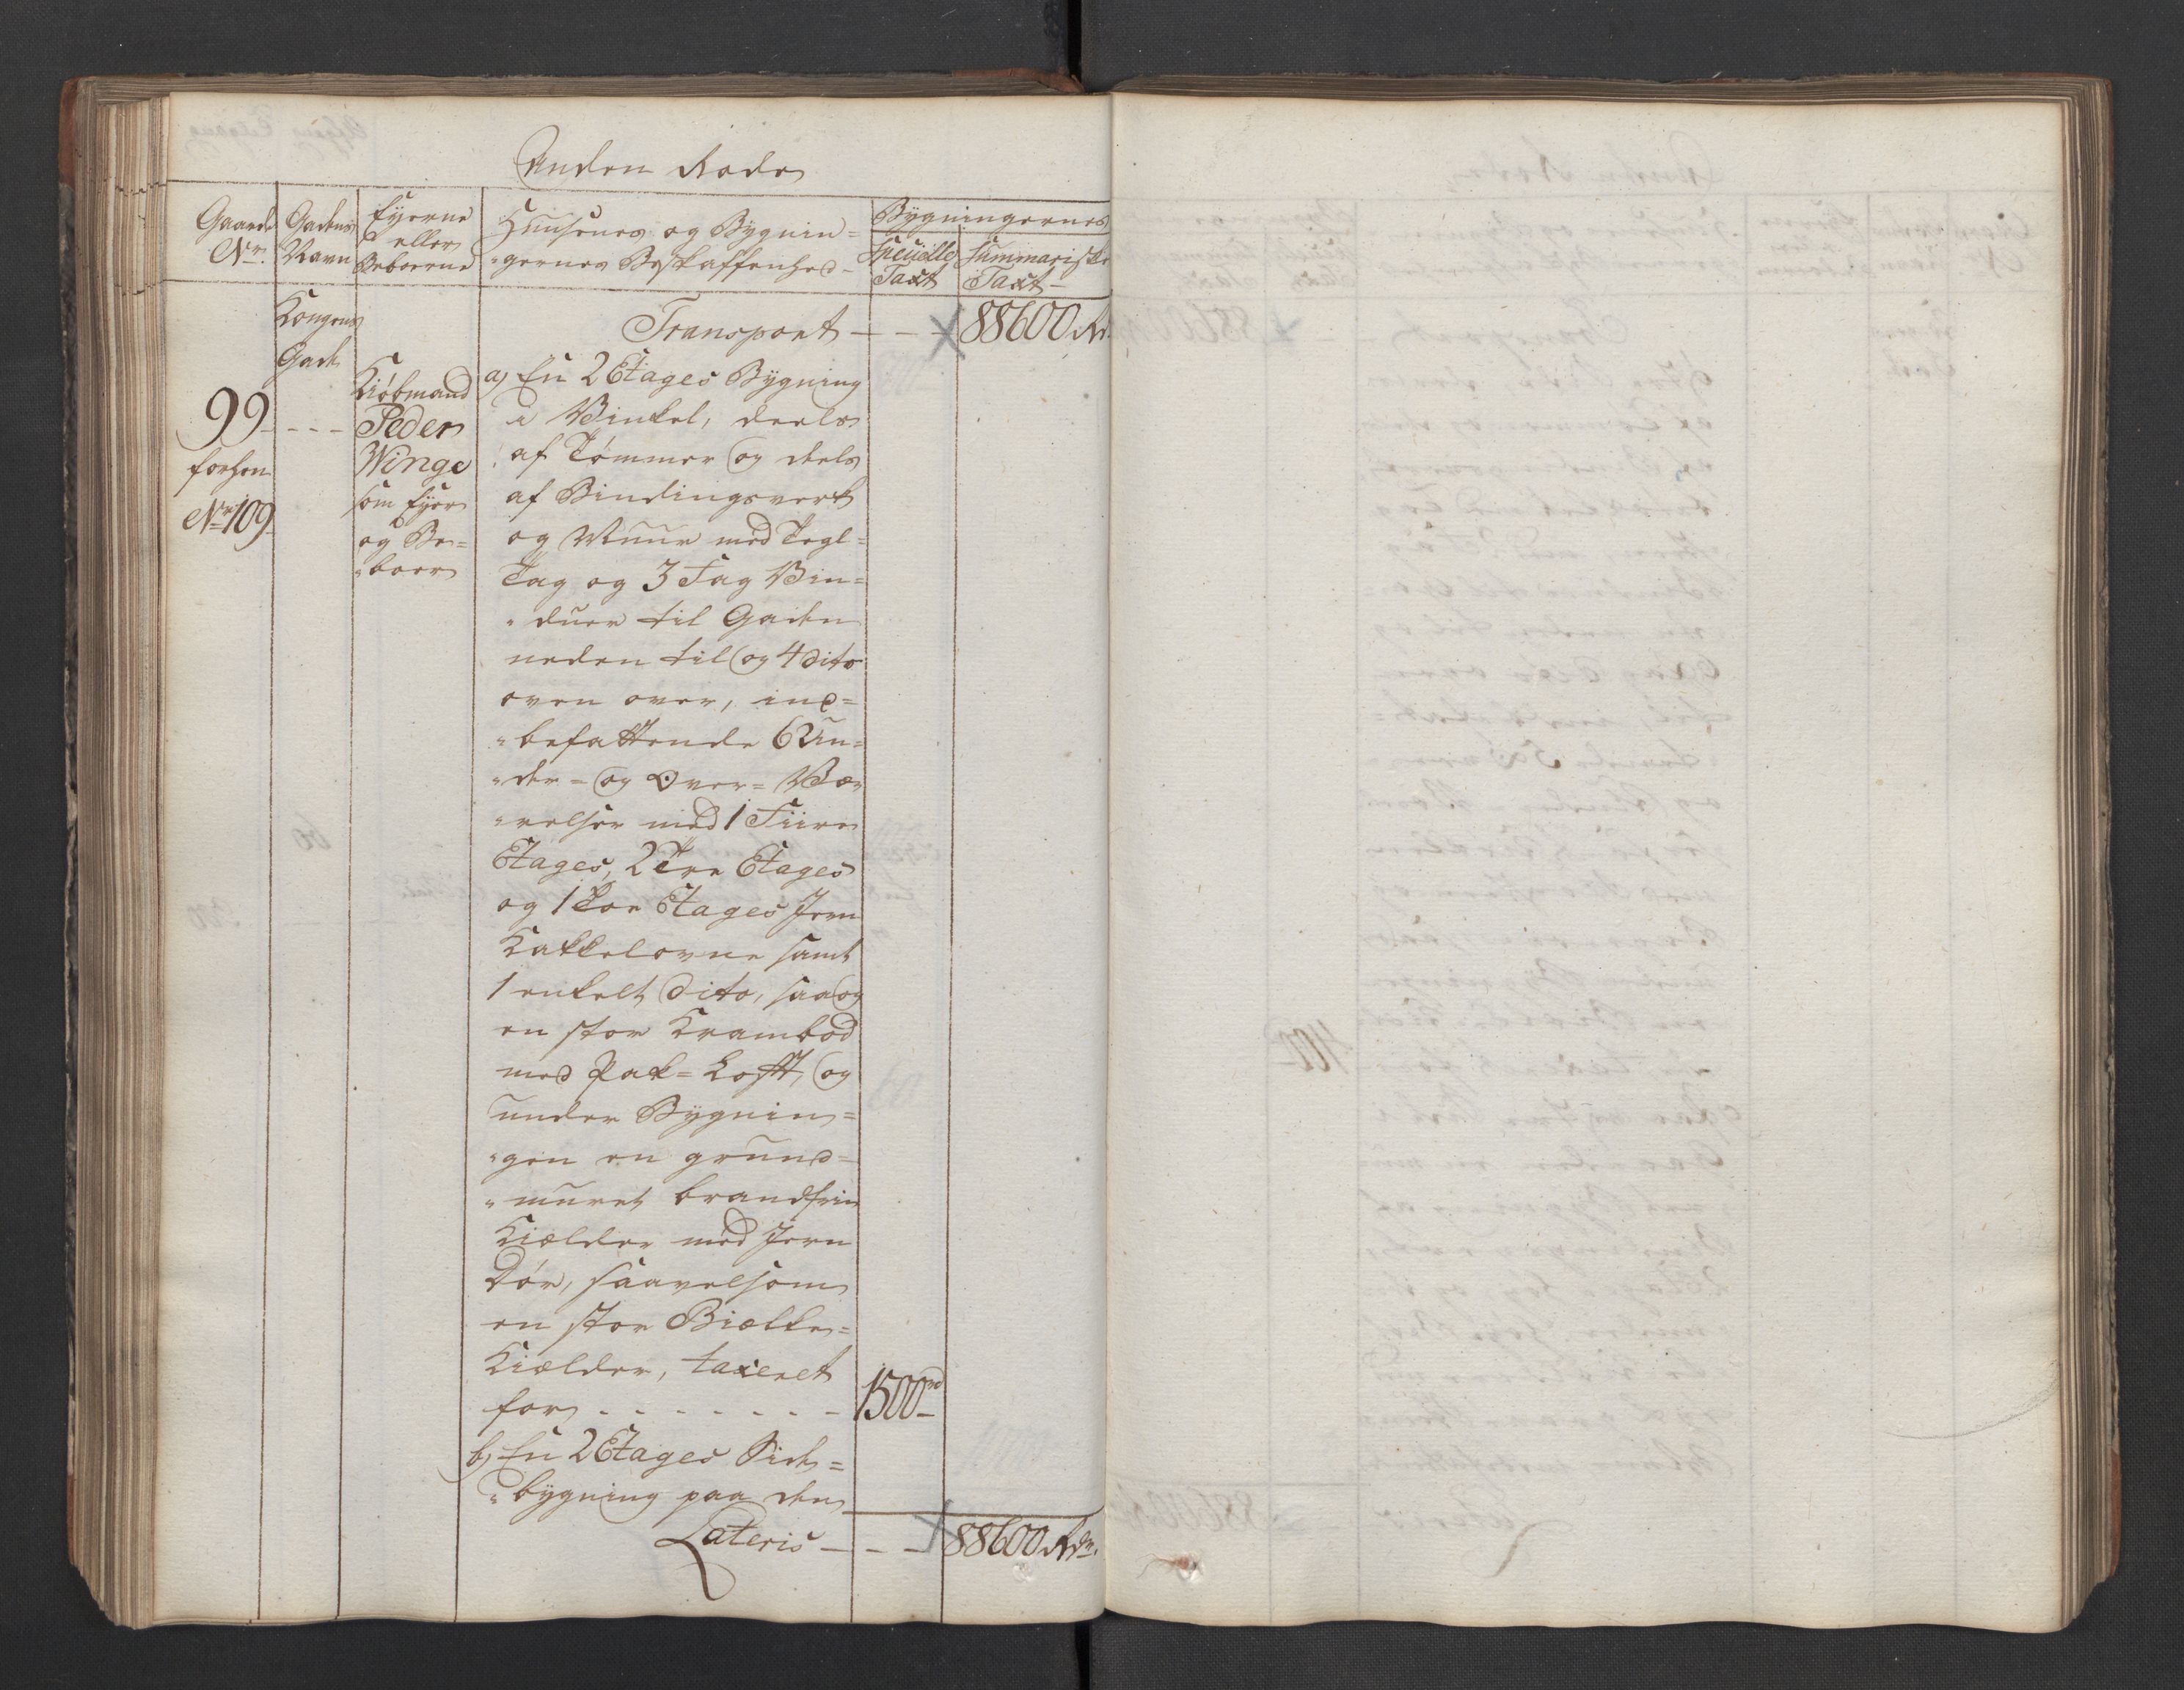 Anden Rode
Gaards Nr.
Gadens Navn
Eyerne eller Beboerne
Huusenes og Bygnin=
"gernes Beskaffenhed
Bygningernes
Specielle Taxt
Summariske Taxt
Transport - - - 88600 Rd.
Kongens
Gade
99 - - -
forhen
No. 109.
Kiöbmand
Peder
Winge
som Eyer
og Be=
"boer
a) En 2 Etages Bygning
i Vinkel, deels
af Tömmer og deels
af Bindingsverk
og Muur med Tegl=
Tag og 3 Fag Vin=
"duer til Gaden
neden til og 4 dito
oven over, ind=
"befattende 6 Un=
"der= og Over= Væ=
"relser med 1 Fiire
Etages, 2 Tre Etages
og 1 Toe Etages Jern
Kakkelovne samt
1 enkelt dito, saa og
en stor Krambod
med Pak=Lofft, og
under Bygnin=
"gen en grund=
"muret brandfrie
Kiælder med Jern
Dör, saavelsom
en stor Biælke=
Kiælder, taxeret
for - - - - - - - 1500 rd
b) En 2 Etages Side=
"bygning paa den
Lateris - - - 88600 Rdr.